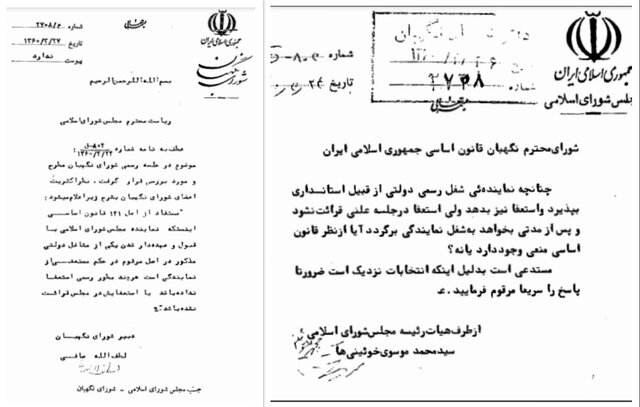 بسمه تعالی
جمهوری اسلامی ایران
شورای نگهبان
شماره ۲۷۰۸/م
تاریخ ۱۳۶۰/۲/۲۷
پیوست ندارد
بسم الله الرحمن الرحیم
ریاست محترم مجلس شورای اسلامی
عطف به نامه شماره ۸۰۲-ق ۱۳۶۰/۲/۲۴ :
موضوع در جلسه رسمی شورای نگهبان مطرح
و مورد بررسی قرار گرفت، نظر اکثریت
اعضای شورای نگهبان بشرح زیر اعلام میشود:
"مستفاد از اصل ۱۴۱ قانون اساسی
اینستکه نماینده مجلس شورای اسلامی با
قبول و عهده‌دار شدن یکی از مشاغل دولتی
مذکور در اصل مرقوم در حکم مستعفی از
نمایندگی است هرچند بطور رسمی استعفا
نداده باشد یا استعفایش در مجلس قرائت
نشده باشد"
دبیر شورای نگهبان
لطف الله صافی
جنب مجلس شورای اسلامی - شورای نگهبان
جمهوری اسلامی ایران
مجلس شورای اسلامی
شماره
تاریخ
نگهبان
شماره ۲۷۰۸
شورای محترم نگهبان قانون اساسی جمهوری اسلامی ایران
چنانچه نماینده‌ئی شغل رسمی دولتی از قبیل استانداری
بپذیرد واستعفا نیز بدهد ولی استعفا درجلسه علنی قرائت نشود
و پس از مدتی بخواهد به شغل نمایندگی برگردد آیا ازنظر قانون
اساسی منعی وجوددارد یانه؟
مستدعی است بدلیل اینکه انتخابات نزدیک است ضرورتا
پاسخ را سریعا مرقوم فرمایید. ع
ازطرف هیات رئیسه مجلس شورای اسلامی
سیدمحمد موسوی خوئینی‌ها